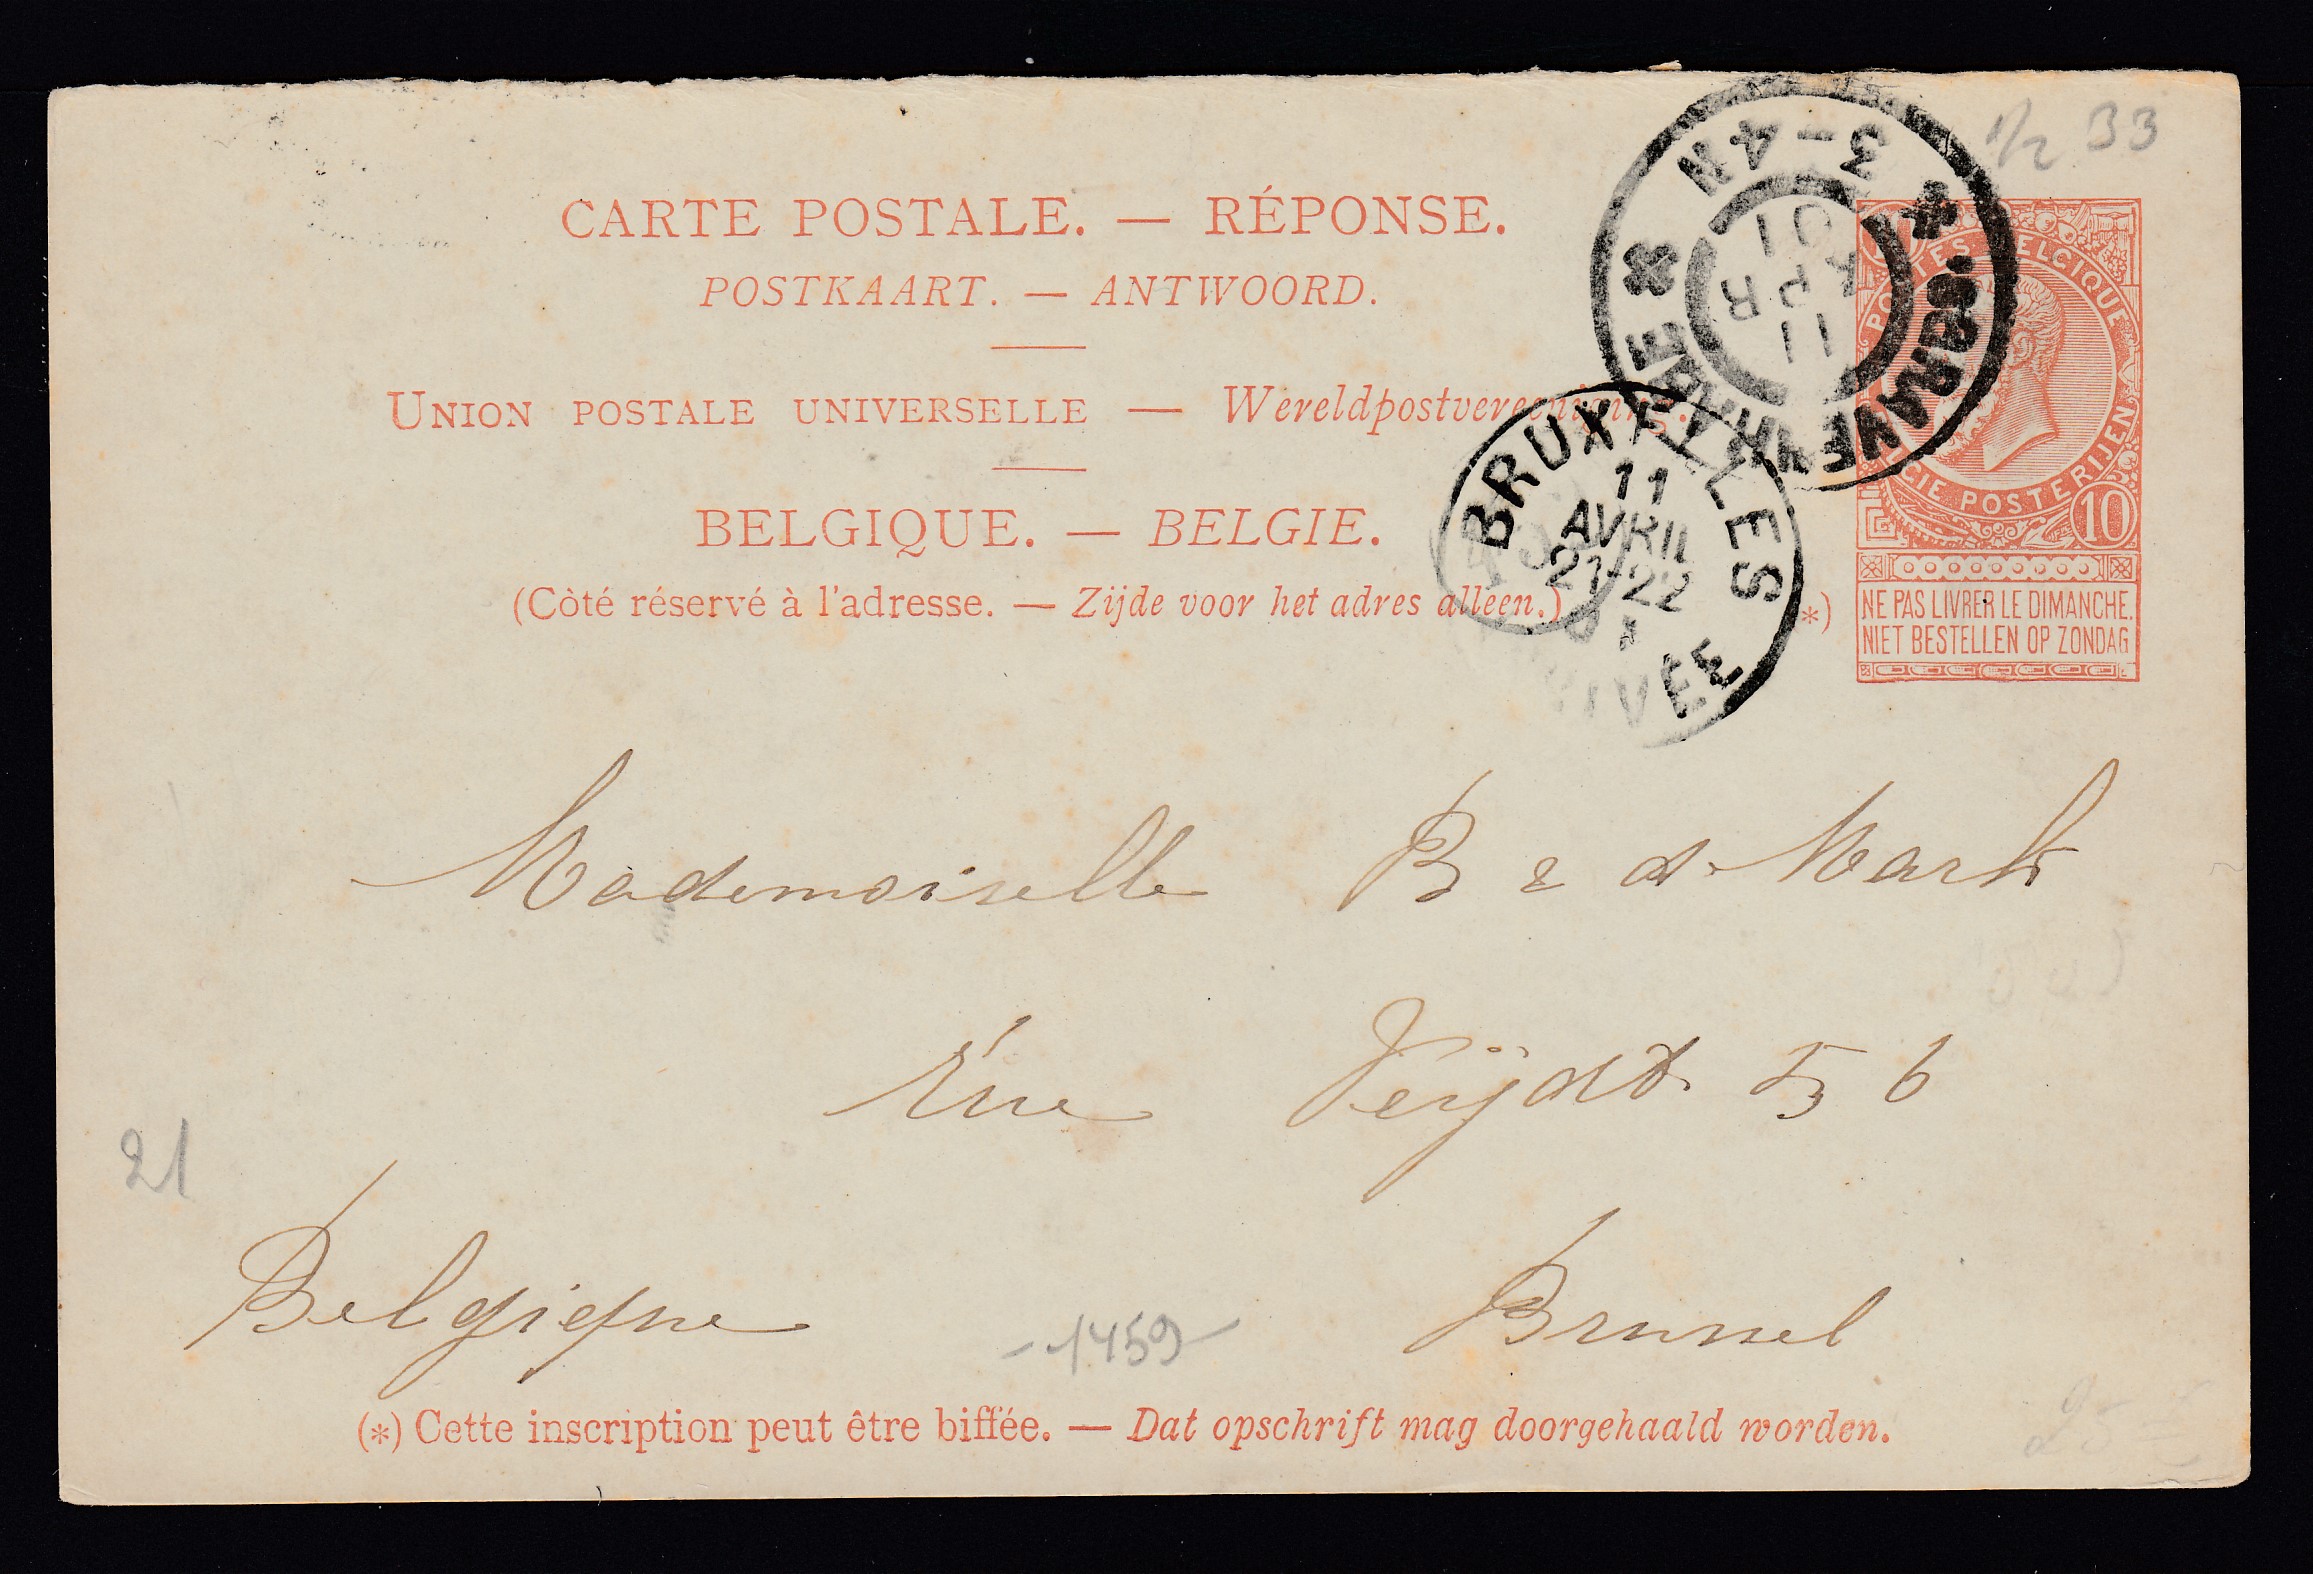 1/2 33
CARTE POSTALE. — RÉPONSE.
POSTKAART. — ANTWOORD.
UNION POSTALE UNIVERSELLE — Wereldpostvereeniging.
BELGIQUE. — BELGIE.
(Còté réservé à l'adresse. — Zijde voor het adres alleen.)
'SGRAVENHAGE
3-4N
11
APR
01
BRUXELLES
11
AVRIL
21-22
01
POSTES BELGIQUE
BELGIE POSTERIJEN
10
*)
NE PAS LIVRER LE DIMANCHE.
NIET BESTELLEN OP ZONDAG
Mademoiselle B & d
Rue Veÿdt 56
21
Belgique Brussel
-1459-
(*) Cette inscription peut être biffée. — Dat opschrift mag doorgehaald worden.